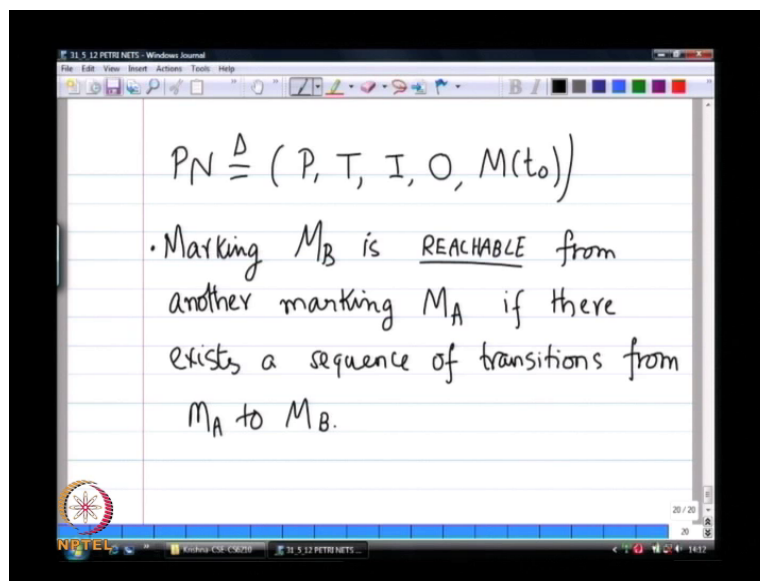 31_5_12 PETRI NETS - Windows Journal
File Edit View Insert Actions Tools Help
B I
PN ≜ (P, T, I, O, M(t₀))
· Marking M_B is REACHABLE from
another marking M_A if there
exists a sequence of transitions from
M_A to M_B.
20 / 20
20
NPTEL
Krishna-CSE-CS6210
31_5_12 PETRI NETS ...
14:12